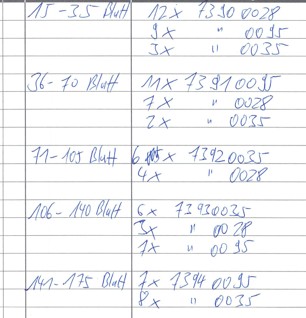 15-35 Blatt 12x 7390 0028
9x " 0095
3x " 0035
36-70 Blatt 11x 7391 0095
7x " 0028
2x " 0035
71-105 Blatt 6 x 7392 0035
4x " 0028
106-140 Blatt 6x 7393 0035
3x " 0028
1x " 0095
141-175 Blatt 7x 7394 0095
8x " 0035